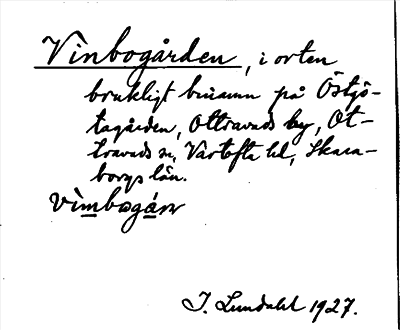 Vinbogården, i orten
brukligt binamn på Östgö-
tagården, Ottravads by, Ot-
travads sn, Vartofta hd, Skara-
borgs län.
vìmbogáṛṇ
J. Lundahl 1927.